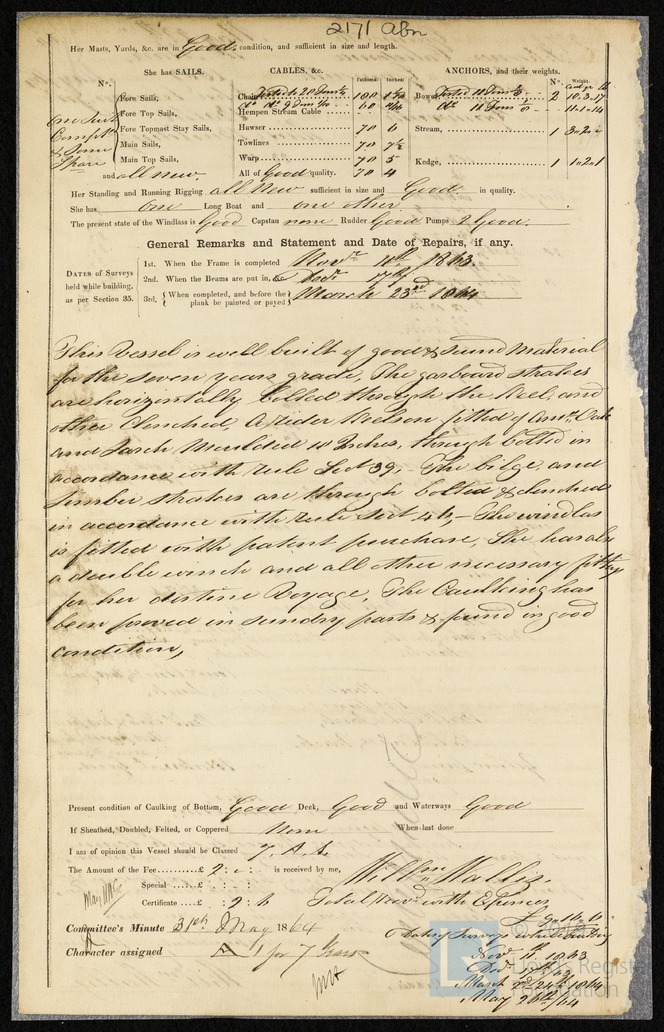 2171 Abn
Her Masts, Yards, &c. are in Good condition, and sufficient in size and length.
She has SAILS. CABLES, &c. ANCHORS, and their weights.
N°. Fathoms. Inches. N°. Weight.
Fore Sails, Chain 100
Fore Top Sails, Hempen Stream Cable 60
Fore Topmast Stay Sails, Hawser 70 6
Main Sails, Towlines 70 7½
Main Top Sails, Warp 70 5
and all new. All of Good quality. 70 4
Bower 2 10.3.17
11.1.14
Stream, 1
Kedge, 1
Her Standing and Running Rigging all New sufficient in size and Good in quality.
She has One Long Boat and one other
The present state of the Windlass is Good Capstan none Rudder Good Pumps 2 Good.
General Remarks and Statement and Date of Repairs, if any.
DATES of Surveys held while building, as per Section 35.
1st. When the Frame is completed Novr 10th 1863.
2nd. When the Beams are put in, &c Decr 7th
3rd. { When completed, and before the plank be painted or payed } March 23rd 1864
This Vessel is well built of good & sound Material
for the seven years grade, The garboard strakes
are horizontally bolted through the Keel, and
other Clenched. A rider Keelson fitted of Amn. Oak
and Larch Moulded 10 Inches, through bolted in
accordance with rule Sect 39,- The bilge and
limber strakes are through bolted & clenched
in accordance with rule Sect 44,- The windlas
is fitted with patent purchase, She has also
a double winch and all other necessary fittings
for her distine Voyage, The Caulking has
been proved in sundry parts & found in good
condition,
Present condition of Caulking of Bottom, Good Deck, Good and Waterways Good
If Sheathed, Doubled, Felted, or Coppered None When last done
I am of opinion this Vessel should be Classed 7. A. 1.
The Amount of the Fee £ 2 : " : is received by me,
Special
Certificate £ : 2 : 6
Committee's Minute 31st May 1864
Character assigned A 1 for 7 Years
Novr 11th 1863
May 26th /64
© 2019
Lloyd's Register
Foundation